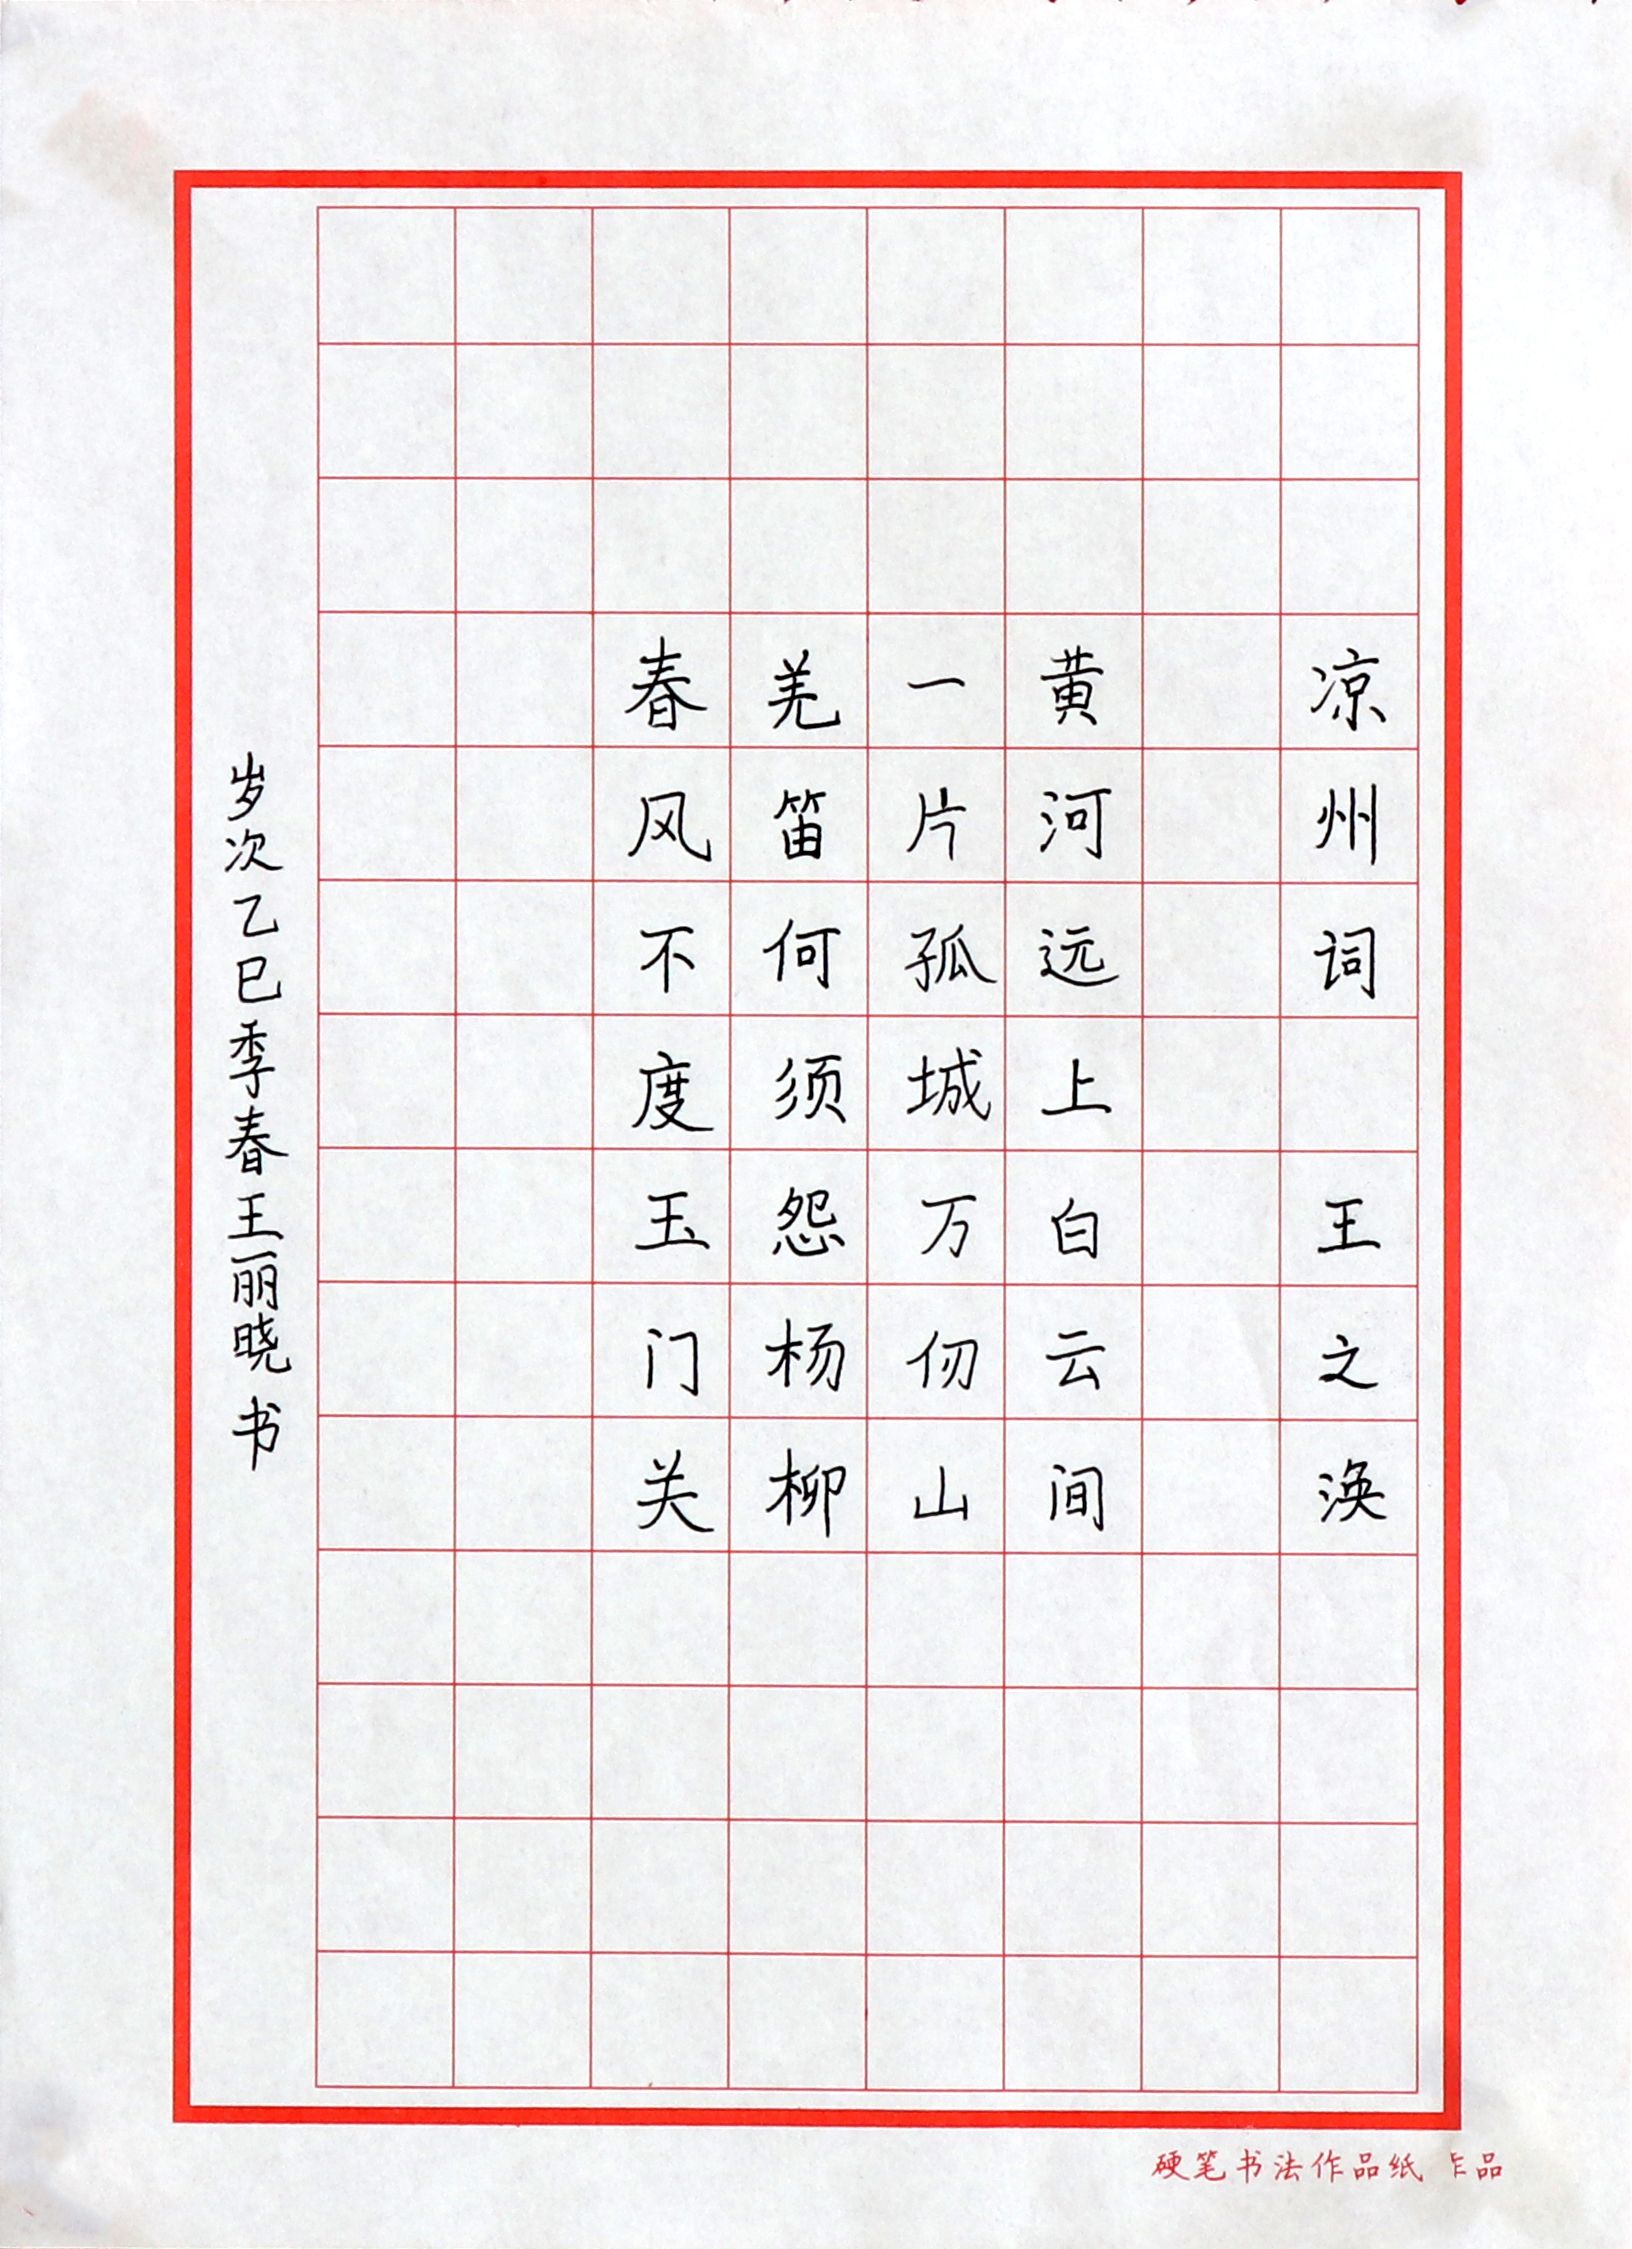 凉州词 王之涣
黄河远上白云间
一片孤城万仞山
羌笛何须怨杨柳
春风不度玉门关
岁次乙巳季春王丽晓书
硬笔书法作品纸 乍品